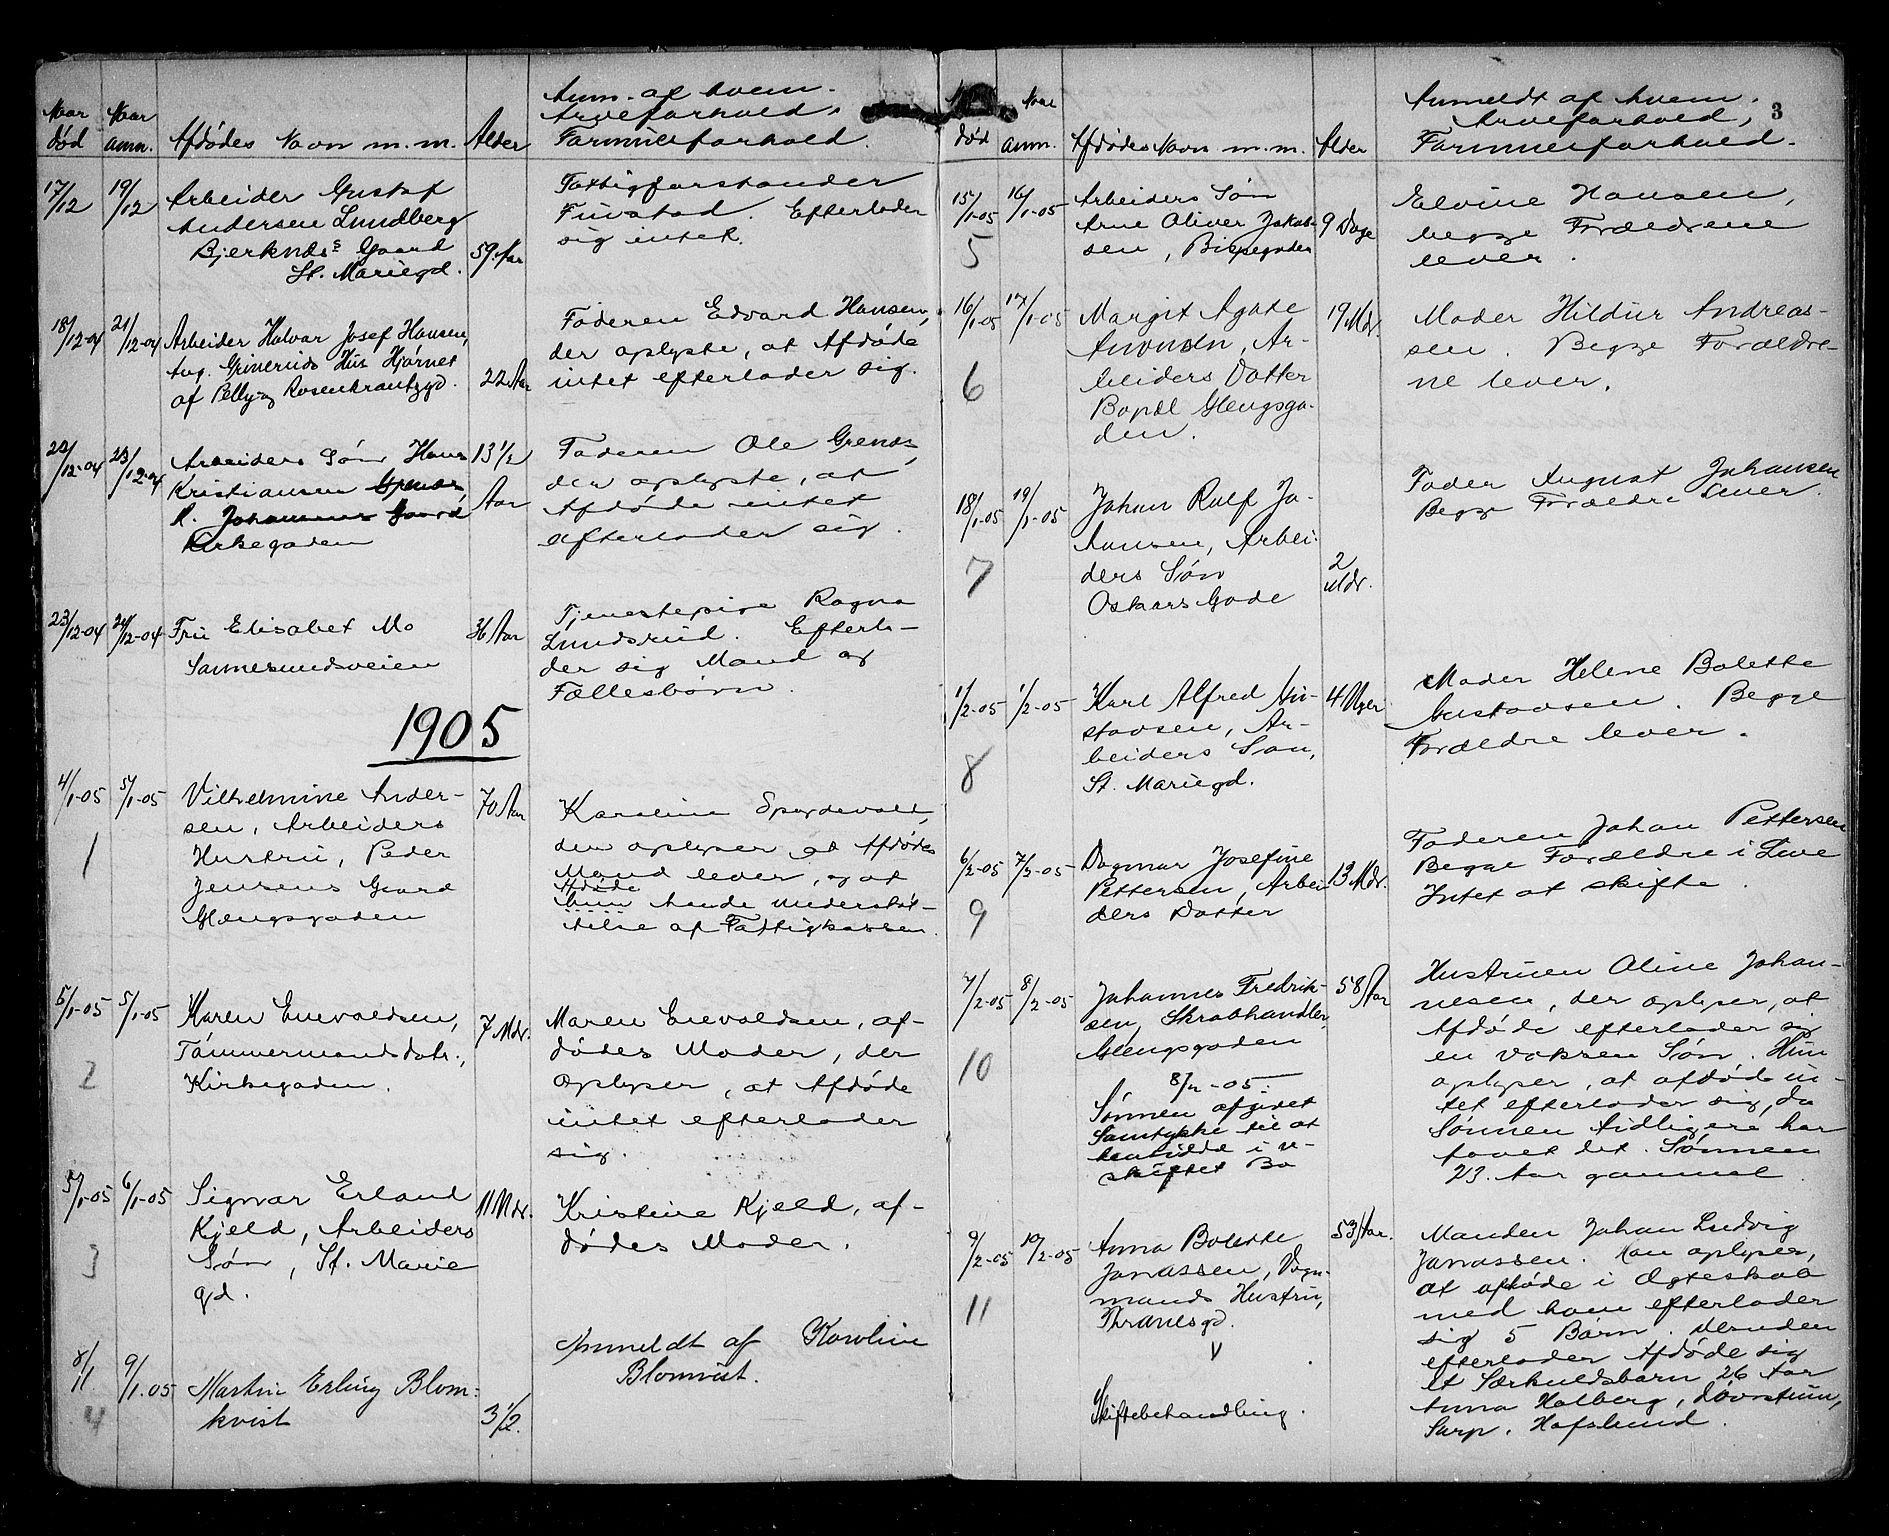 Naar død
Naar anm.
Afdødes Navn m.m.
Alder
Anm. af hvem.
Arveforhold,
Familieforhold.
17/12
19/12
Arbeider Gustaf
Andersen Lundberg
Bjerknæss Gaard
St. Mariegd.
59 Aar
Fattigforstander
Efterlader
sig intet.
18/12-04
21/12-04
Arbeider Halvar Josef Hansen,
Aug. Grineruds Hus Hjørnet
af Pelly og Rosenkrantzgd.
22 Aar
Faderen Edvard Hansen,
der oplyste, at Afdøde
intet efterlader sig.
22/12-04
23/12-04
Arbeiders Søn Hans
Kristiansen
R. Johannes Gaard
Kirkegaden
13 1/2
Aar
Faderen Ole
der oplyste, at
Afdøde intet
efterlader sig.
23/12-04
24/12-04
Fru Elisabet Mo
Sannesundsveien
36 Aar
Tjenestepige Ragna
Lundsrud. Efterla-
der sig Mand og
Fællesbørn.
1905
4/1-05
5/1-05
Vilhelmine Ander-
sen, Arbeiders
Hustru, Peder
Jensens Gaard
Glengsgaden
70 Aar
1
Karoline
der oplyser at Afdødes
Mand lever, og at
Afdøde
hun havde Understøt-
telse af Fattigkassen.
5/1-05
5/1-05
Karen Enevaldsen,
Tømmermands Datr.,
Kirkegaden.
7 Mdr.
2
Maren Enevaldsen, af-
dødes Moder, der
oplyser, at Afdøde
intet efterlader
sig.
5/1-05
6/1-05
Sigvar Erland
Kjeld, Arbeiders
Søn, St. Marie
gd.
11 Mdr.
3
Kristine Kjeld, af-
dødes Moder.
8/1
9/1.05
Martin Erling Blom-
kvist
3 1/2.
4
Anmeldt af Karoline
Blomvist.
3
død
Naar anm.
Afdødes Navn m.m.
Alder
Anmeldt af hvem.
Arveforhold,
Familieforhold.
15/1-05
16/1-05
Arbeiders Søn
Arne Oliver Jakob-
sen, Bispegaden
9 Dage
5
Elvine Hansen,
begge Forældrene
lever.
16/1-05
17/1-05
Margit Agate
Ar-
beiders Datter
Bopæl Glengsga-
den.
19 Mdr.
6
Moder Hildur Andreas-
sen. Begge Forældre-
ne lever.
18/1-05
19/1-05
Johan Rolf Jo-
hansen, Arbei-
ders Søn
Oskars Gade
2
Mdr.
7
Fader August Johansen
Begge Forældre lever.
1/2-05
1/2-05
Karl Alfred Gu-
stavsen, Ar-
beiders Søn,
St. Mariegd.
4 Uger
8
Moder Helene Bolette
Gustavsen. Begge
Forældre lever.
6/2-05
7/2-05
Dagmar Josefine
Pettersen, Arbei-
ders Datter
13 Mdr.
9
Faderen Johan Pettersen
Begge Forældre i Live
Intet at skifte.
7/2-05
8/2-05
Johannes Fredrik-
sen, Skrabhandler,
Glengsgaden
58 Aar
10
8/2-05.
Sønnen afgivet
Samtykke til at
hensidde i u-
skiftet Bo
Hustruen Oline Johan-
nesen, der oplyser, at
Afdøde efterlader sig
en voksen Søn. Hun
oplyser, at afdøde in-
tet efterlader sig, da
Sønnen tidligere har
faaet det. Sønnen
23 Aar gammel.
9/2-05
10/2-05
Anna Bolette
Jonassen, Vogn-
mands Hustru,
Thranesgd.
53 Aar.
11
V
Skiftebehandling.
Manden Johan Ludvig
Jonassen. Han oplyser,
at afdøde i Ægteskab
med ham efterlader
sig 5 Børn. desuden
efterlader Afdøde sig
et Særkuldsbarn 26 Aar
Anna Holberg,
Sarp. Hafslund.